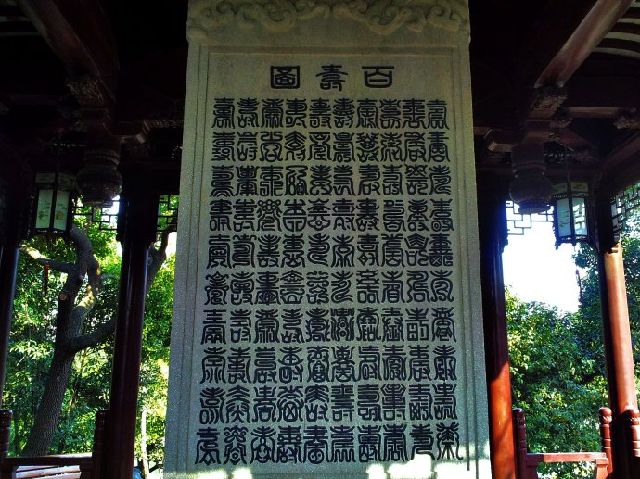 百壽圖
壽壽壽壽壽壽壽壽壽壽
壽壽壽壽壽壽壽壽壽壽
壽壽壽壽壽壽壽壽壽壽
壽壽壽壽壽壽壽壽壽壽
壽壽壽壽壽壽壽壽壽壽
壽壽壽壽壽壽壽壽壽壽
壽壽壽壽壽壽壽壽壽壽
壽壽壽壽壽壽壽壽壽壽
壽壽壽壽壽壽壽壽壽壽
壽壽壽壽壽壽壽壽壽壽